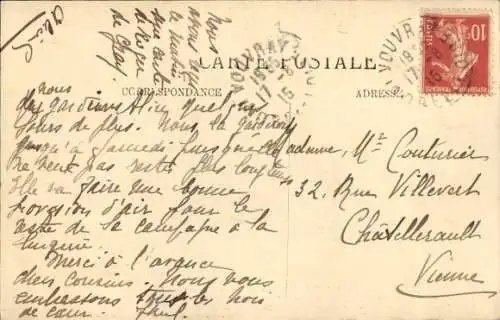 Nous
avons reçu
ce matin
une carte
de Roger
de Gray.
CARTE POSTALE
CORRESPONDANCE
ADRESSE
VOUVRAY
17
15
10
nous
de garder Alice quelques
jours de plus. Nous la garderons
jusqu'à samedi puisqu'elle
ne veut pas rester plus longtemps
Elle va faire une bonne
provision d'air pour le
reste de sa campagne à la
lingerie.
Merci à l'avance
chers cousins. Nous vous
embrassons tous les trois
de cœur.
Madame, Mr Couturier
32, Rue Villevert
Châtellerault
Vienne